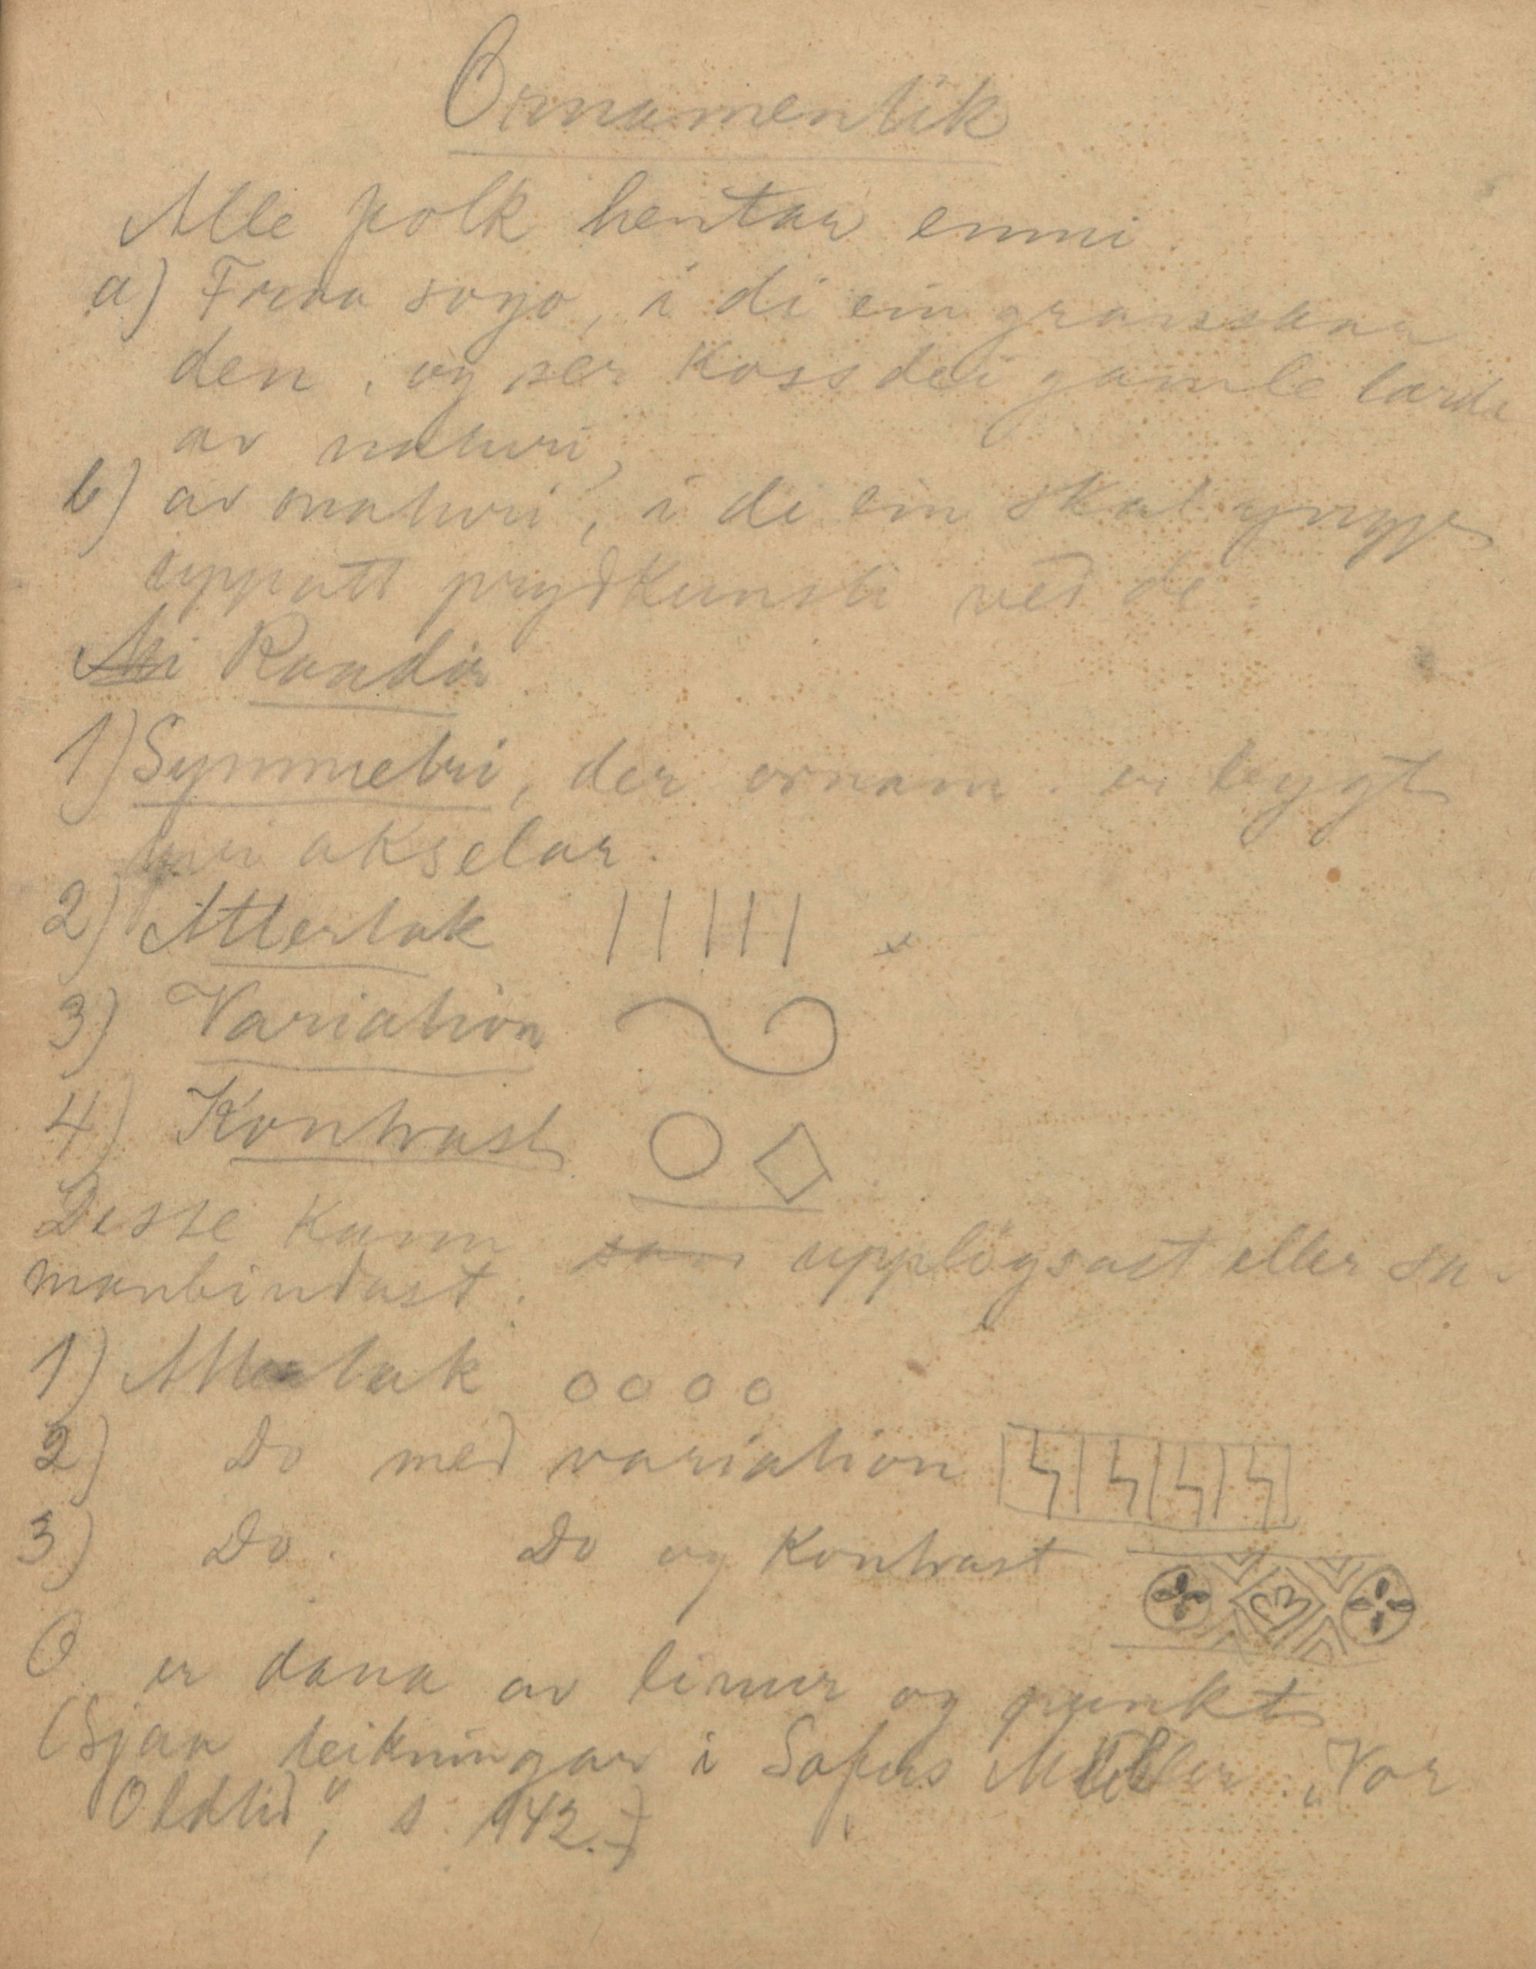 Ornamentik
Alle folk hentar emni
a) Fraa sogo, i di ein granskar
den, og ser koss dei gamle lærde
av naturi,
b) av naturi, i di ein skal yngje
uppatt prydkunsti ved de.
Raadir
1) Symmetri, der ornam. er bygt
akselar.
2) Attertak
3) Variation
4) Kontrast
Desse kann som upplöysast eller sa-
manbindast.
1) Attertak
2) Do med variation
3) Do. Do og kontrast
O er dana av linur og punkt
(Sjaa teikningar i Sofus Müller „Vor
Oldtid", s. 142.)